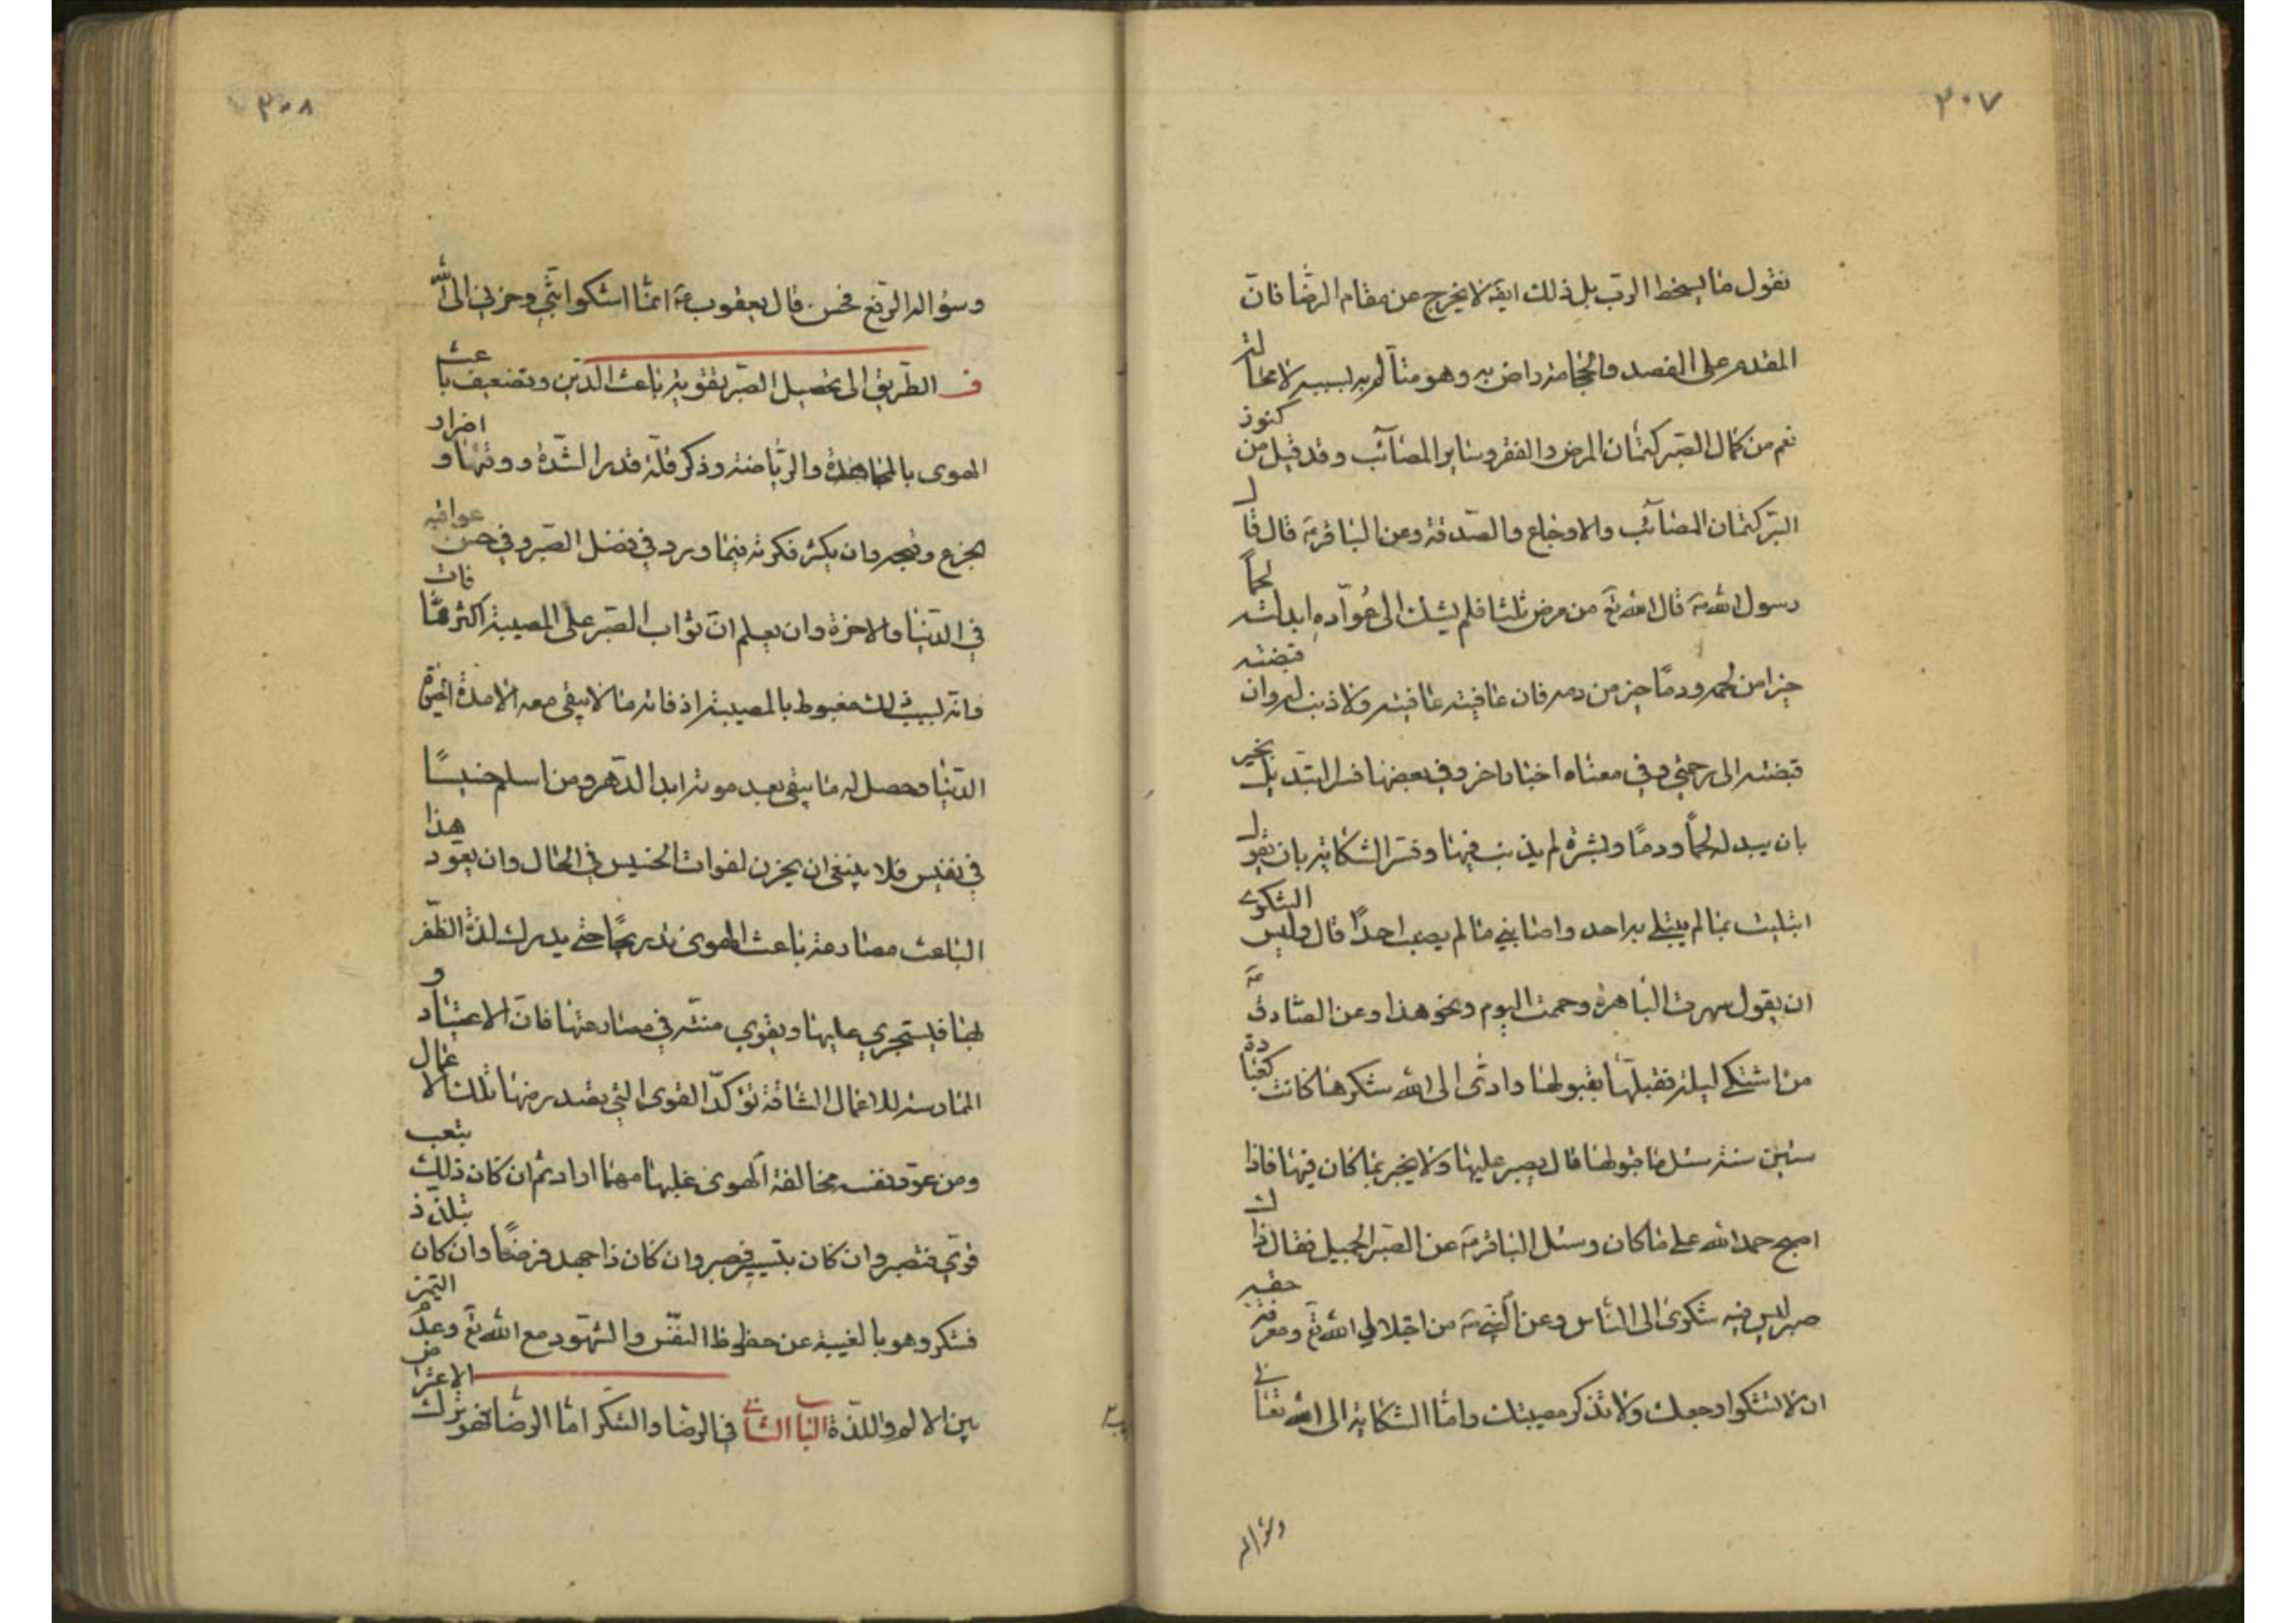 ٣٠٧
نقول ما يسخط الرب بل ذلك ايضا لا يخرج عن مقام الرضا فان
المقدم على الفصد والحجامة راض به وهو متألم به بسببه لا محالة
نعم من كمال الصبر كتمان المرض والفقر وساير المصائب وقد قيل من كنوز
البر كتمان المصائب والاوجاع والصدقة وعن الباقر ع قال قال
رسول الله ص قال الله تع من مرض ثلثا فلم يشك الى عوّاده ابدلته لحماً
خيرا من لحمه ودمًا خير من دمه فان عافيته عافيته ولا ذنب له وان قبضته
قبضته الى رحمتي وفي معناه اخبار اخر وفي بعضها فسر التبديل بخير
بان يبدله لحماً ودمًا وبشرة لم يذنب فيها وفسر الشكاية بان يقول
ابتليت بما لم يبتلى به احد واصابني ما لم يصب احدًا قال وليس الشكوى
ان يقول سهرت البارحة وحممت اليوم ونحو هذا وعن الصادق ع
من اشتكى ليلة فقبلها بقبولها وادى الى الله شكرها كانت كعبادة
ستين سنة سئل ما قبولها قال يصبر عليها ولا يخبر بما كان فيها فاذا
اصبح حمد الله على ما كان وسئل الباقر ع عن الصبر الجميل فقال ذاك
صبر ليس فيه شكوى الى الناس وعن النبي ص من اجلال الله تع ومعرفة حقه
ان لا تشكوا وجعك ولا تذكر مصيبتك واما الشكاية الى الله تعالى
وسؤاله
٣٠٨
وسؤاله الرفع فحسن قال يعقوب ع انما اشكوا بثي وحزني الى الله
ف الطريق الى تحصيل الصبر تقوية باعث الدين وتضعيف باعث
الهوى بالمجاهدة والرياضة وذكر قلة قدر الشدة ووقتها و اضرار
الجزع وقبحه وان يكثر فكرته فيما ورد في فضل الصبر وفي حسن عواقبه
في الدنيا والاخرة وان يعلم ان ثواب الصبر على المصيبة اكثر مما فات
وانه بسبب ذلك مغبوط بالمصيبة اذ فاته ما لا يبقى معه الا مدة الحيوة
الدنيا وحصل له ما يبقى بعد موته ابد الدهر ومن اسلم خسيسًا
في نفيس فلا ينبغي ان يحزن لفوات الخسيس في الحال وان يعوّد هذا
الباعث مصارعة باعث الهوى تدريجًا حتى يدرك لذة الظفر
بها فيستجري عليها ويقوي منته في مصارعتها فان الاعتياد و
الممارسة للاعمال الشاقة تؤكّد القوى التي يصدر منها تلك الاعمال
ومن عوّد نفسه مخالفة الهوى غلبها مهما اراد ثم ان كان ذلك بتعب
قوي فتصبر وان كان بتيسير فصبر وان كان ذا جهد فرضًا وان كان بتلذّذ
فشكر وهو بالغيبة عن حظوظ النفس والشهود مع الله تع وعدم التميز
بين الالم واللذة الباب الثاني في الرضا والشكر اما الرضا فهو ترك الاعتراض